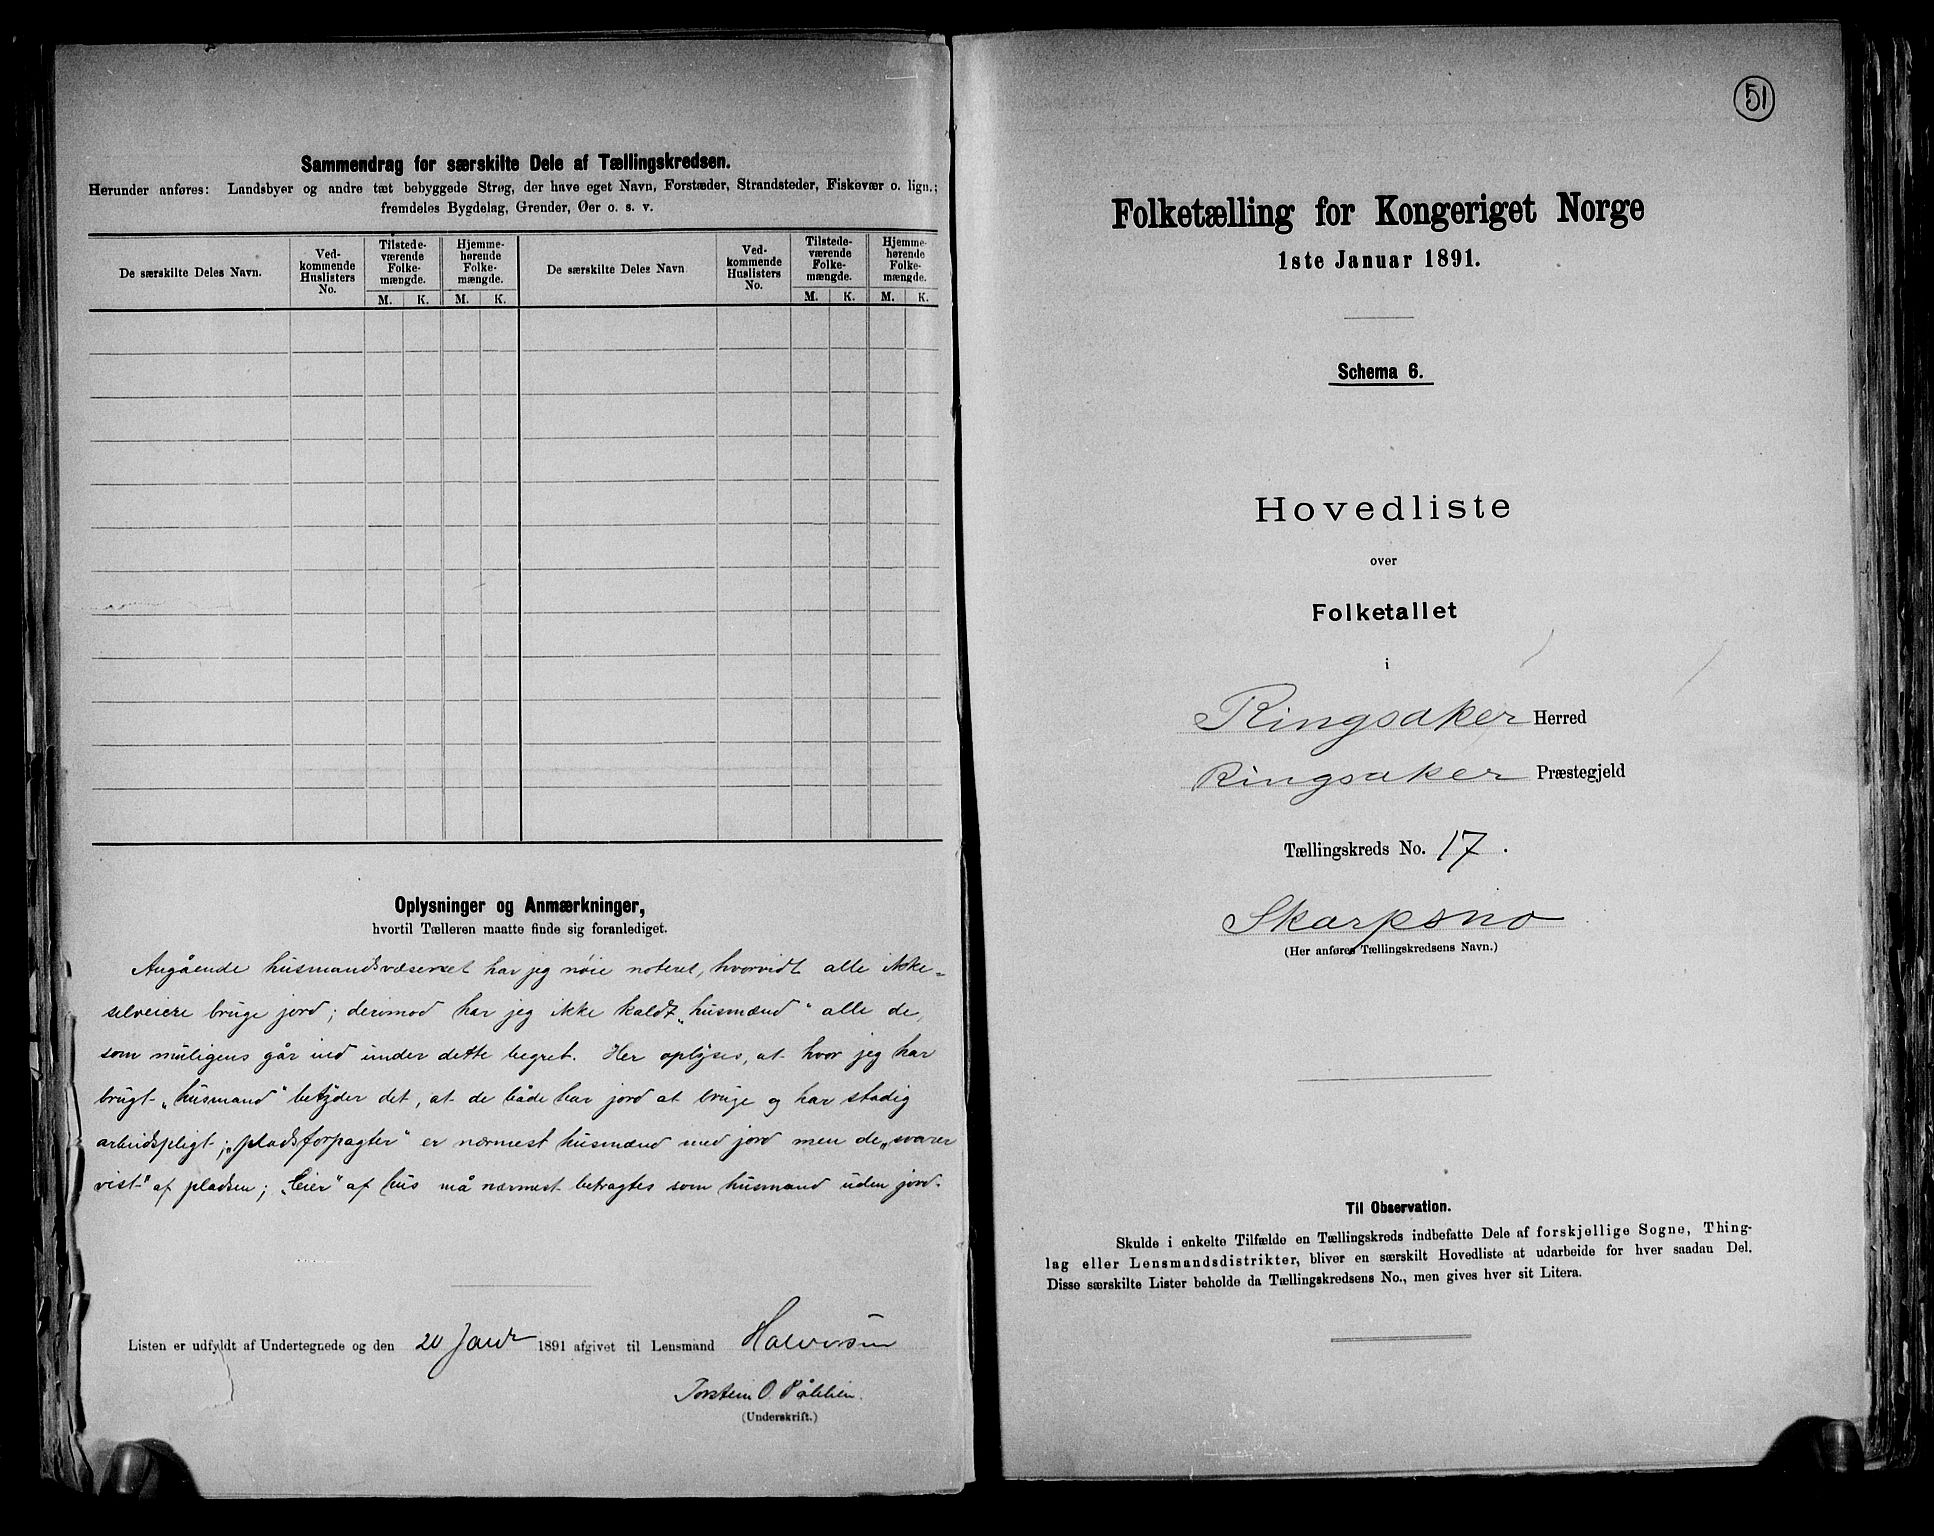 Sammendrag for særskilte Dele af Tællingskredsen.
Herunder anføres: Landsbyer og andre tæt bebyggede Strøg, der have eget Navn, Forstæder, Strandsteder, Fiskevær o. lign.;
fremdeles Bygdelag, Grender, Øer o. s. v.
De særskilte Deles Navn.
Ved-
kommende
Huslisters
No.
Tilstede-
værende
Folke-
mængde.
M. K.
Hjemme-
hørende
Folke-
mængde.
M. K.
De særskilte Deles Navn
Ved-
kommende
Huslisters
No.
Tilstede-
værende
Folke-
mængde.
M. K.
Hjemme-
hørende
Folke-
mængde.
M. K.
Oplysninger og Anmærkninger,
hvortil Tælleren maatte finde sig foranlediget.
Angående husmandsvæsenet har jeg nøie noteret, hvorvidt alle ikke-
selveiere bruge jord; derimod har jeg ikke kaldt „husmænd" alle de,
som muligens går ind under dette begret. Her oplyses, at hvor jeg har
brugt „husmand" betyder det, at de både har jord at bruge og har stadig
arbeidspligt; „pladsforpagter" er nærmest husmænd med jord men de „svarer
vist" af pladsen; „Eier" af hus må nærmest betragtes som husmand uden jord.
Listen er udfyldt af Undertegnede og den 20 Janr 1891 afgivet til Lensmand Halvorsen
Torstein O.
(Underskrift.)
51
Folketælling for Kongeriget Norge
1ste Januar 1891.
Schema 6.
Hovedliste
over
Folketallet
i
Ringsaker Herred
Ringsaker Præstegjeld
Tællingskreds No. 17.
Skarpsno
(Her anføres Tællingskredsens Navn.)
Til Observation.
Skulde i enkelte Tilfælde en Tællingskreds indbefatte Dele af forskjellige Sogne, Thing-
lag eller Lensmandsdistrikter, bliver en særskilt Hovedliste at udarbeide for hver saadan Del.
Disse særskilte Lister beholde da Tællingskredsens No., men gives hver sit Litera.